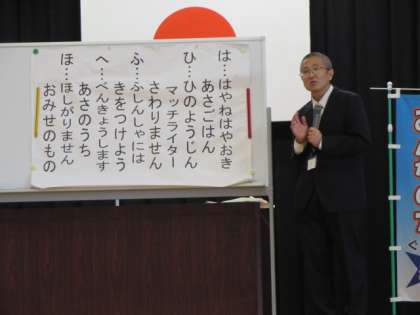 は…はやねはやおき
あさごはん
ひ…ひのようじん
マッチライター
さわりません
ふ…ふしんしゃには
きをつけよう
へ…べんきょうします
あさのうち
ほ…ほしがりません
おみせのもの